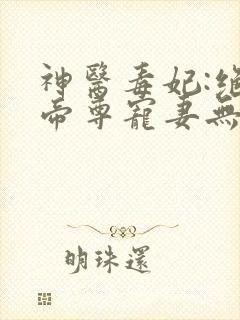 神醫毒妃:絕
帝尊寵妻無
明珠還